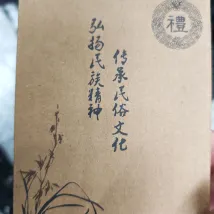 禮
传承民俗文化
弘扬民族精神